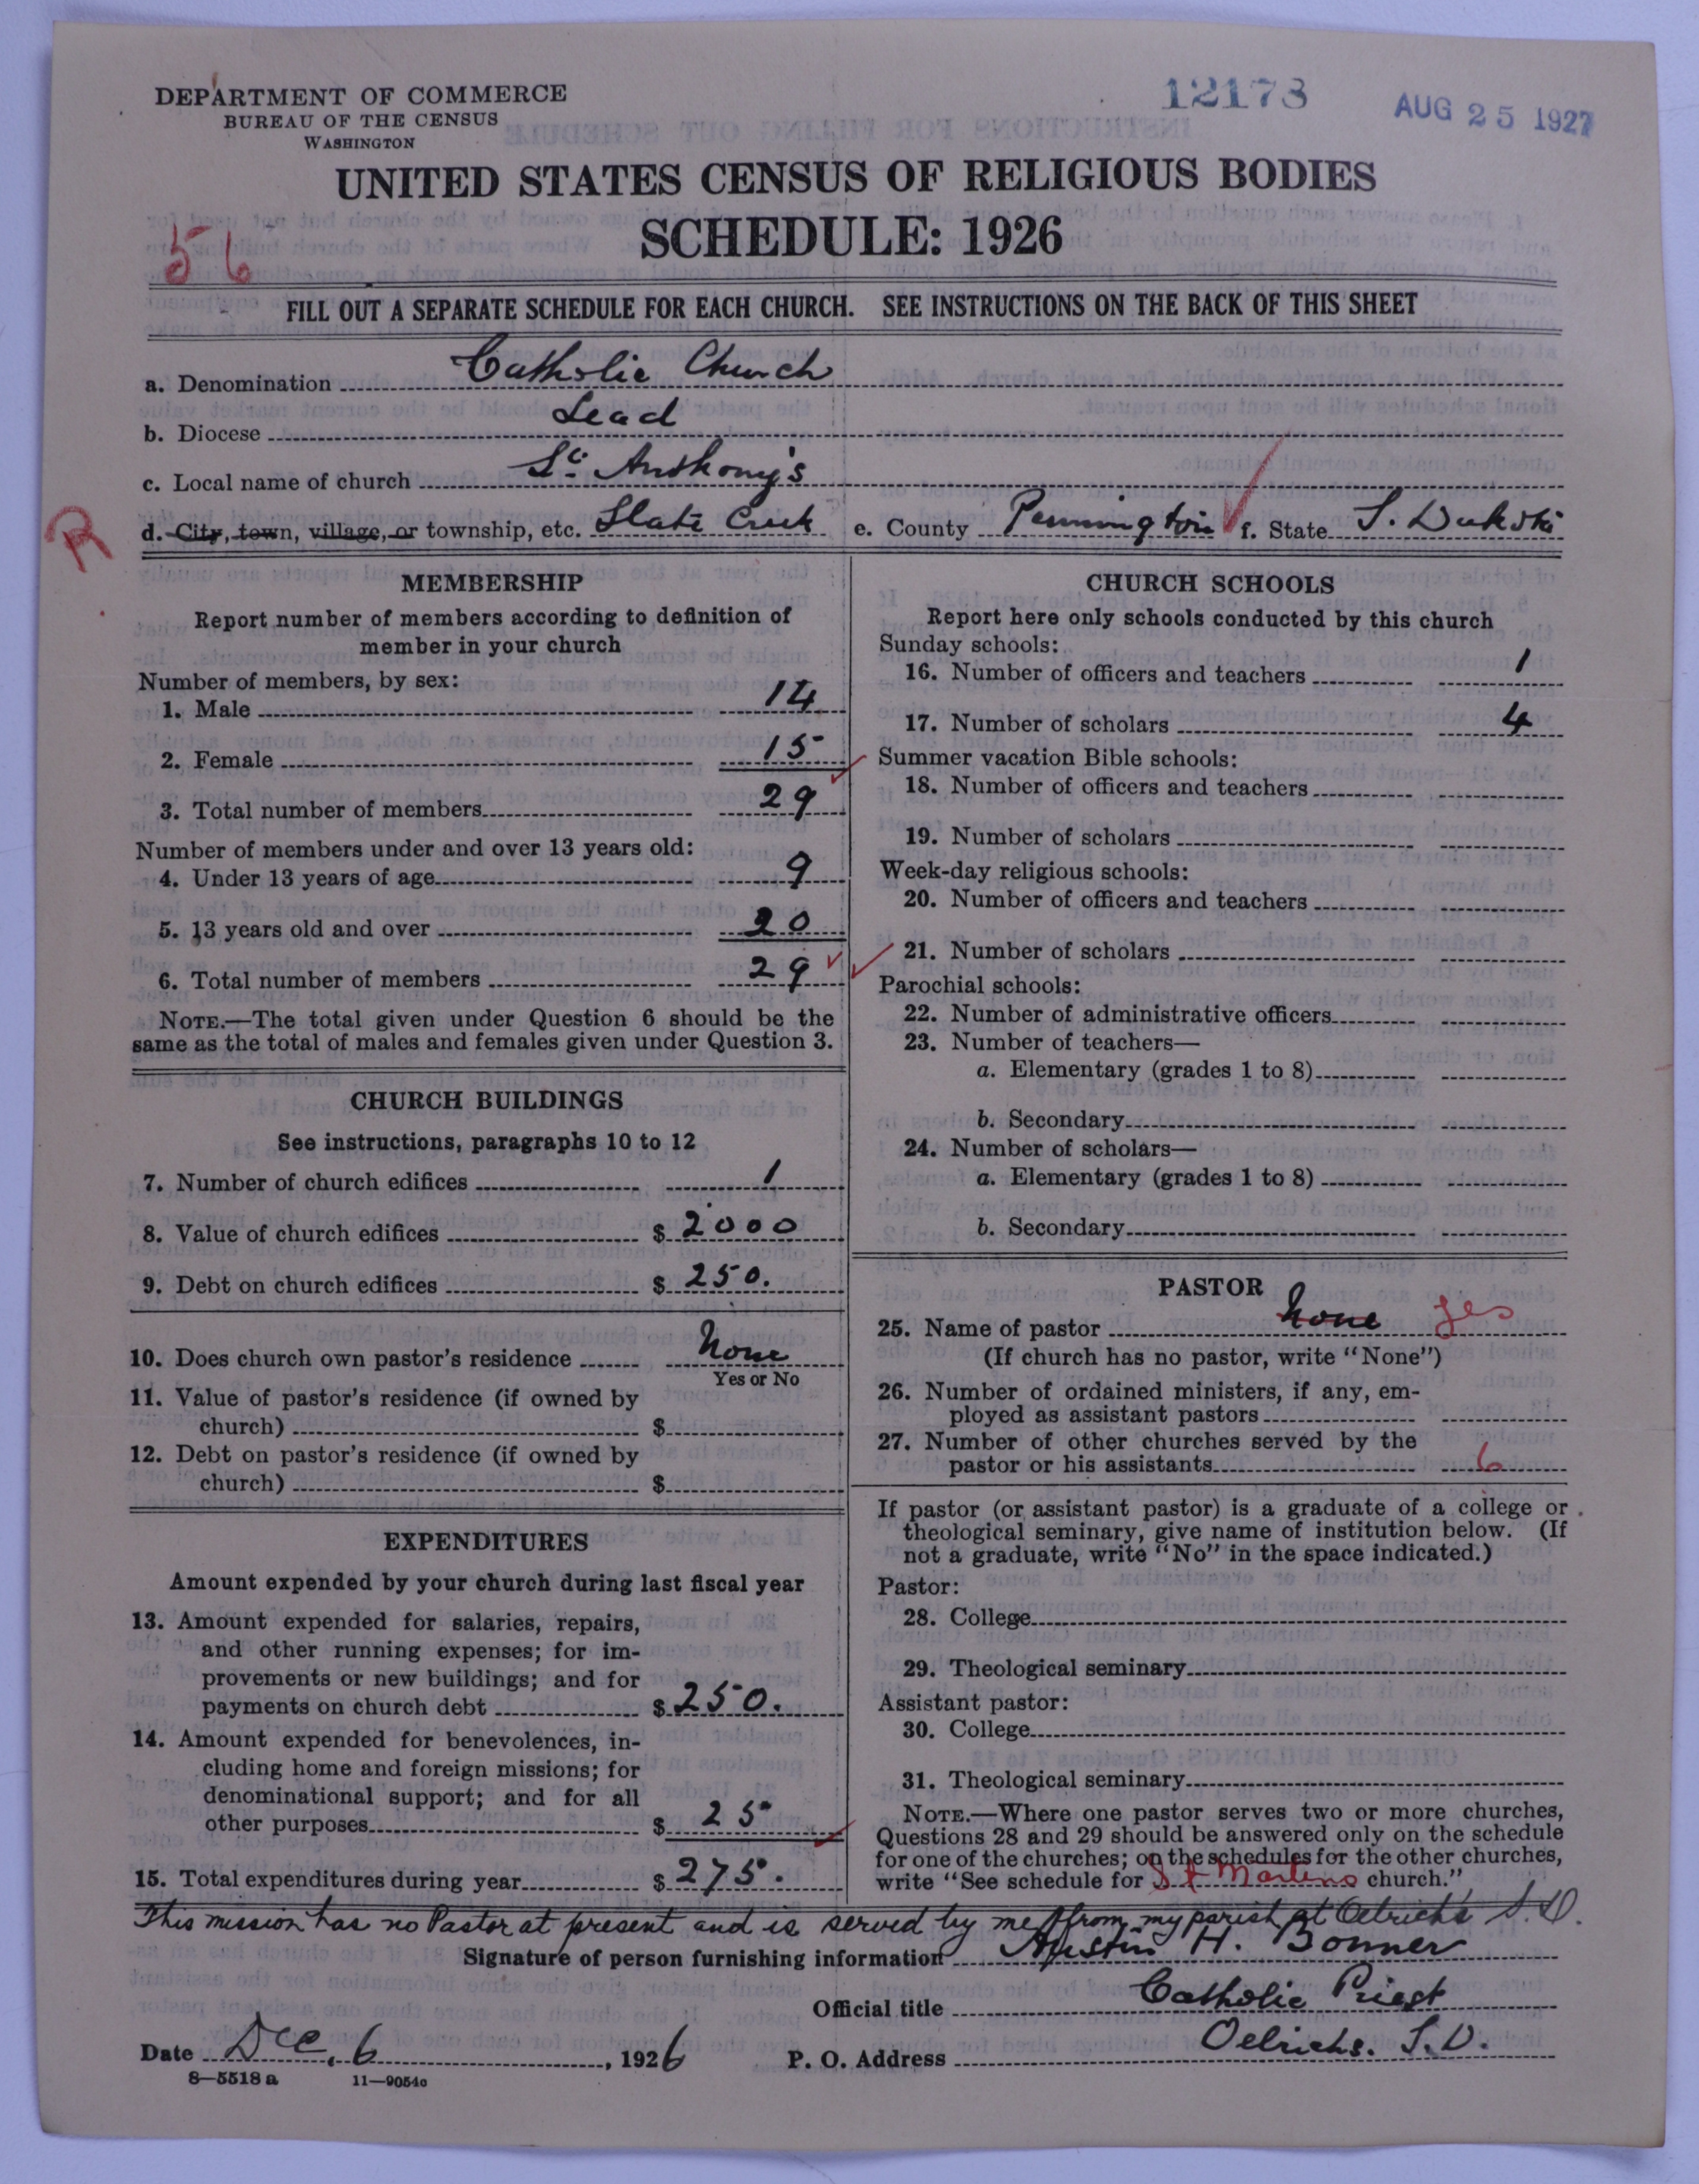 DEPARTMENT OF COMMERCE
BUREAU OF THE CENSUS
WASHINGTON
12173
AUG 25 1927
UNITED STATES CENSUS OF RELIGIOUS BODIES
SCHEDULE: 1926
56
FILL OUT A SEPARATE SCHEDULE FOR EACH CHURCH. SEE INSTRUCTIONS ON THE BACK OF THIS SHEET
a. Denomination Catholic Church
b. Diocese Lead
c. Local name of church St. Anthony's
R
d. City, town, village, or township, etc. Slate Creek e. County Pennington f. State S. Dakota
MEMBERSHIP
Report number of members according to definition of
member in your church
Number of members, by sex:
1. Male 14
2. Female 15
3. Total number of members 29
Number of members under and over 13 years old:
4. Under 13 years of age 9
5. 13 years old and over 20
6. Total number of members 29
NOTE.—The total given under Question 6 should be the
same as the total of males and females given under Question 3.
CHURCH BUILDINGS
See instructions, paragraphs 10 to 12
7. Number of church edifices 1
8. Value of church edifices $ 2000
9. Debt on church edifices $ 250.
10. Does church own pastor's residence None
Yes or No
11. Value of pastor's residence (if owned by
church) $
12. Debt on pastor's residence (if owned by
church) $
EXPENDITURES
Amount expended by your church during last fiscal year
13. Amount expended for salaries, repairs,
and other running expenses; for im-
provements or new buildings; and for
payments on church debt $ 250.
14. Amount expended for benevolences, in-
cluding home and foreign missions; for
denominational support; and for all
other purposes $ 25
15. Total expenditures during year $ 275.
CHURCH SCHOOLS
Report here only schools conducted by this church
Sunday schools:
16. Number of officers and teachers 1
17. Number of scholars 4
Summer vacation Bible schools:
18. Number of officers and teachers
19. Number of scholars
Week-day religious schools:
20. Number of officers and teachers
21. Number of scholars
Parochial schools:
22. Number of administrative officers
23. Number of teachers—
a. Elementary (grades 1 to 8)
b. Secondary
24. Number of scholars—
a. Elementary (grades 1 to 8)
b. Secondary
PASTOR
25. Name of pastor None yes
(If church has no pastor, write "None")
26. Number of ordained ministers, if any, em-
ployed as assistant pastors
27. Number of other churches served by the
pastor or his assistants 6
If pastor (or assistant pastor) is a graduate of a college or
theological seminary, give name of institution below. (If
not a graduate, write "No" in the space indicated.)
Pastor:
28. College
29. Theological seminary
Assistant pastor:
30. College
31. Theological seminary
NOTE.—Where one pastor serves two or more churches,
Questions 28 and 29 should be answered only on the schedule
for one of the churches; on the schedules for the other churches,
write "See schedule for St Martins church."
This mission has no Pastor at present and is served by me from my parish at Oelrichs S.D.
Signature of person furnishing information Austin H. Bonner
Official title Catholic Priest
Date Dec. 6, 1926 P. O. Address Oelrichs. S.D.
8—5518 a 11—9054c